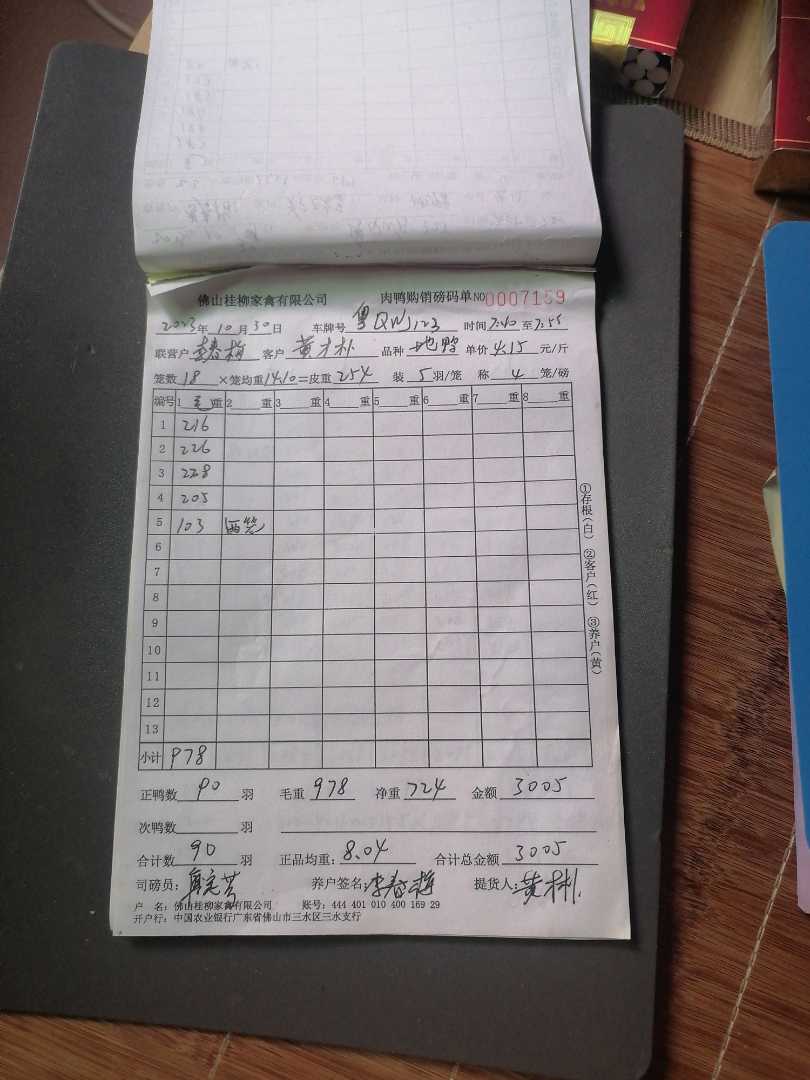 佛山桂柳家禽有限公司 肉鸭购销磅码单 NO 0007159
2023年10月30日 车牌号 粤QWJ123 时间 7:40 至 7:55
联营户 春梅 客户 黄才朴 品种 地鸭 单价 4.15 元/斤
笼数 18 ×笼均重 14.10 =皮重 254 装 5 羽/笼 称 4 笼/磅
编号 1 毛 重 2 重 3 重 4 重 5 重 6 重 7 重 8 重
1 216
2 226
3 228
4 205
5 103 两笼
6
7
8
9
10
11
12
13
小计 978
正鸭数 90 羽 毛重 978 净重 724 金额 3005
次鸭数 羽
合计数 90 羽 正品均重: 8.04 合计总金额 3005
司磅员: 养户签名: 李春梅 提货人: 黄彬
户 名: 佛山桂柳家禽有限公司 账号: 444 401 010 400 169 29
开户行: 中国农业银行广东省佛山市三水区三水支行
①存根(白) ②客户(红) ③养户(黄)